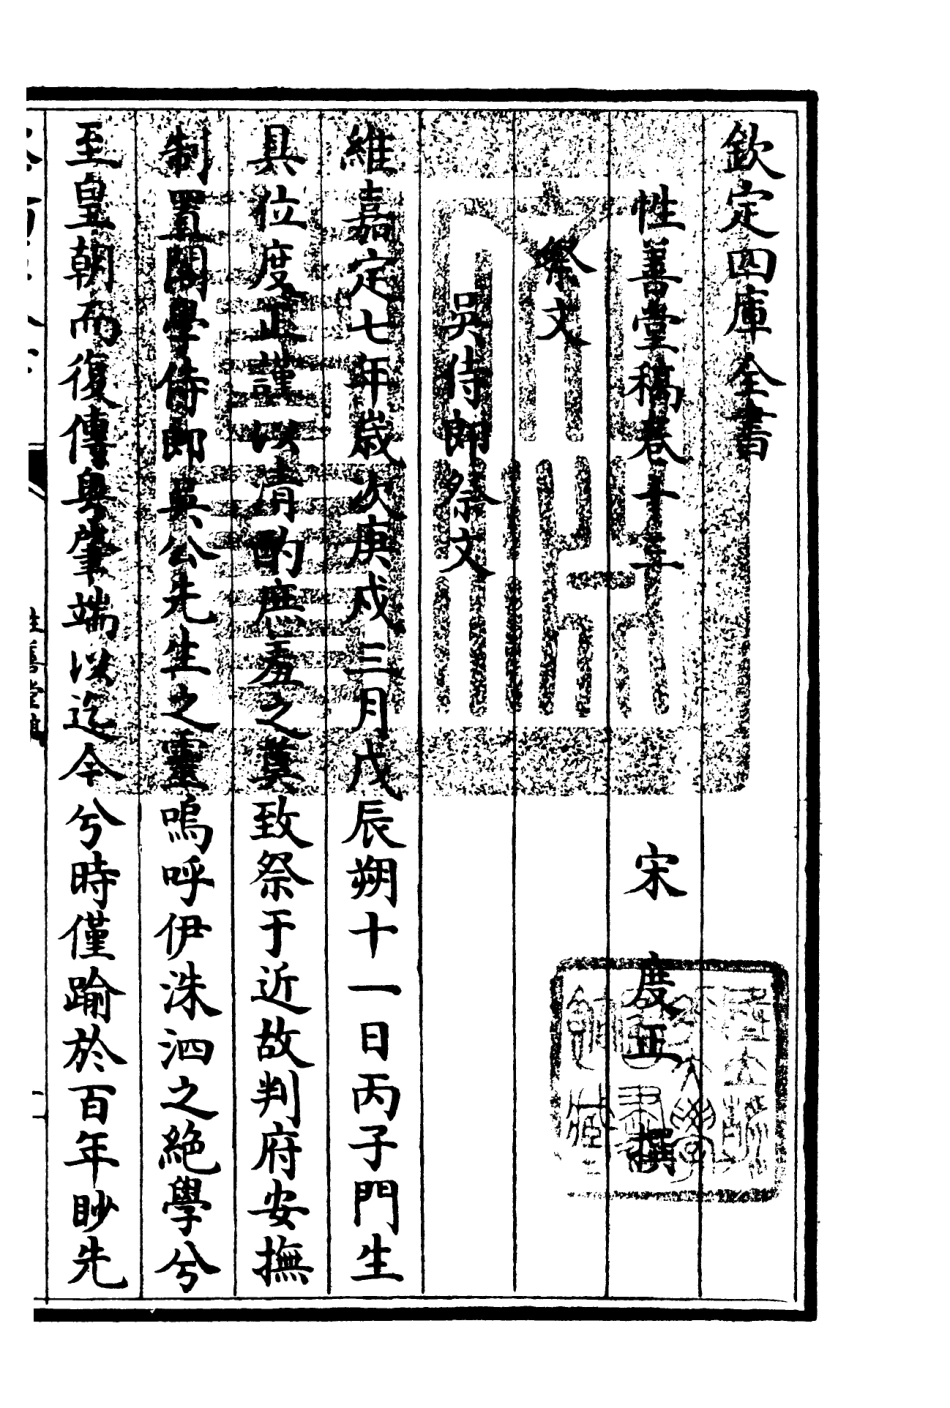 欽定四庫全書
性善堂稿卷十三
宋 度正 撰
祭文
吳侍郎祭文
維嘉定七年歲次庚戌三月戊辰朔十一日丙子門生
具位度正謹以清酌庶羞之奠致祭于近故判府安撫
制置閣學侍郎吳公先生之靈嗚呼伊洙泗之絶學兮
至皇朝而復傳粤肇端以迄今兮時僅踰於百年眇先
性善堂稿